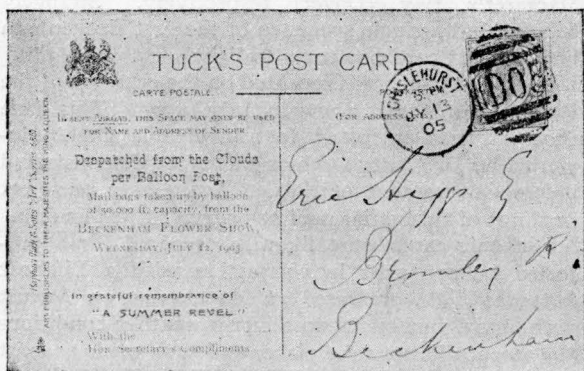 TUCK'S POST CARD
CARTE POSTALE.
IF SENT ABROAD, THIS SPACE MAY ONLY BE USED
FOR NAME AND ADDRESS OF SENDER
(FOR ADDRESS
Despatched from the Clouds
per Balloon Post,
Mail bags taken up by balloon
of 50,000 ft. capacity, from the
BECKENHAM FLOWER SHOW,
WEDNESDAY, JULY 12, 1905.
In grateful remembrance of
"A SUMMER REVEL"
With the
Hon. Secretary's Compliments
ART PUBLISHERS TO THEIR MAJESTIES THE KING & QUEEN
CHISLEHURST
JY 13
05
D05
Eric
Bromley R
Beckenham